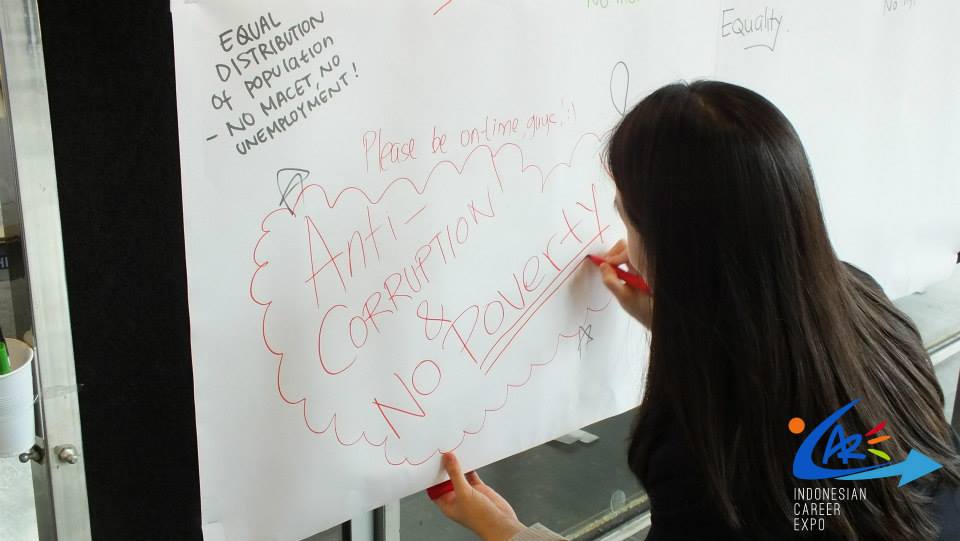 EQUAL
DISTRIBUTION
of population
- NO MACET, NO
UNEMPLOYMENT!
Equality.
Please be on-time, guys!!
Anti-
CORRUPTION
&
NO POVERTY
CAR
INDONESIAN
CAREER
EXPO